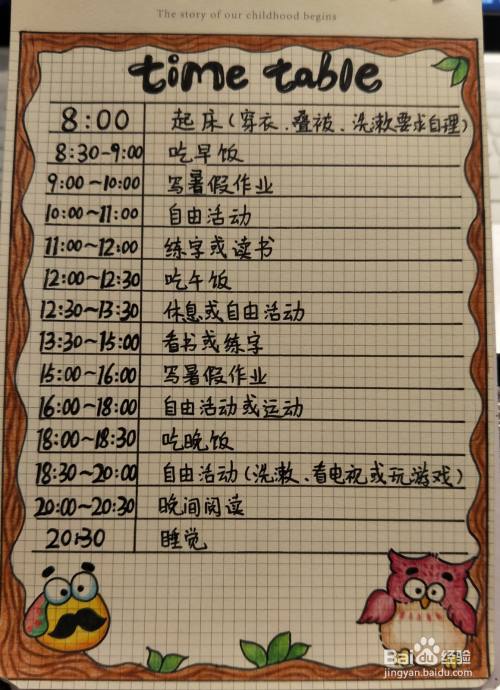 The story of our childhood begins
time table
8:00 起床(穿衣、叠被、洗漱要求自理)
8:30-9:00 吃早饭
9:00~10:00 写暑假作业
10:00~11:00 自由活动
11:00~12:00 练字或读书
12:00~12:30 吃午饭
12:30~13:30 休息或自由活动
13:30~15:00 看书或练字
15:00~16:00 写暑假作业
16:00~18:00 自由活动或运动
18:00~18:30 吃晚饭
18:30~20:00 自由活动(洗漱、看电视或玩游戏)
20:00~20:30 晚间阅读
20:30 睡觉
Baidu经验
jingyan.baidu.com